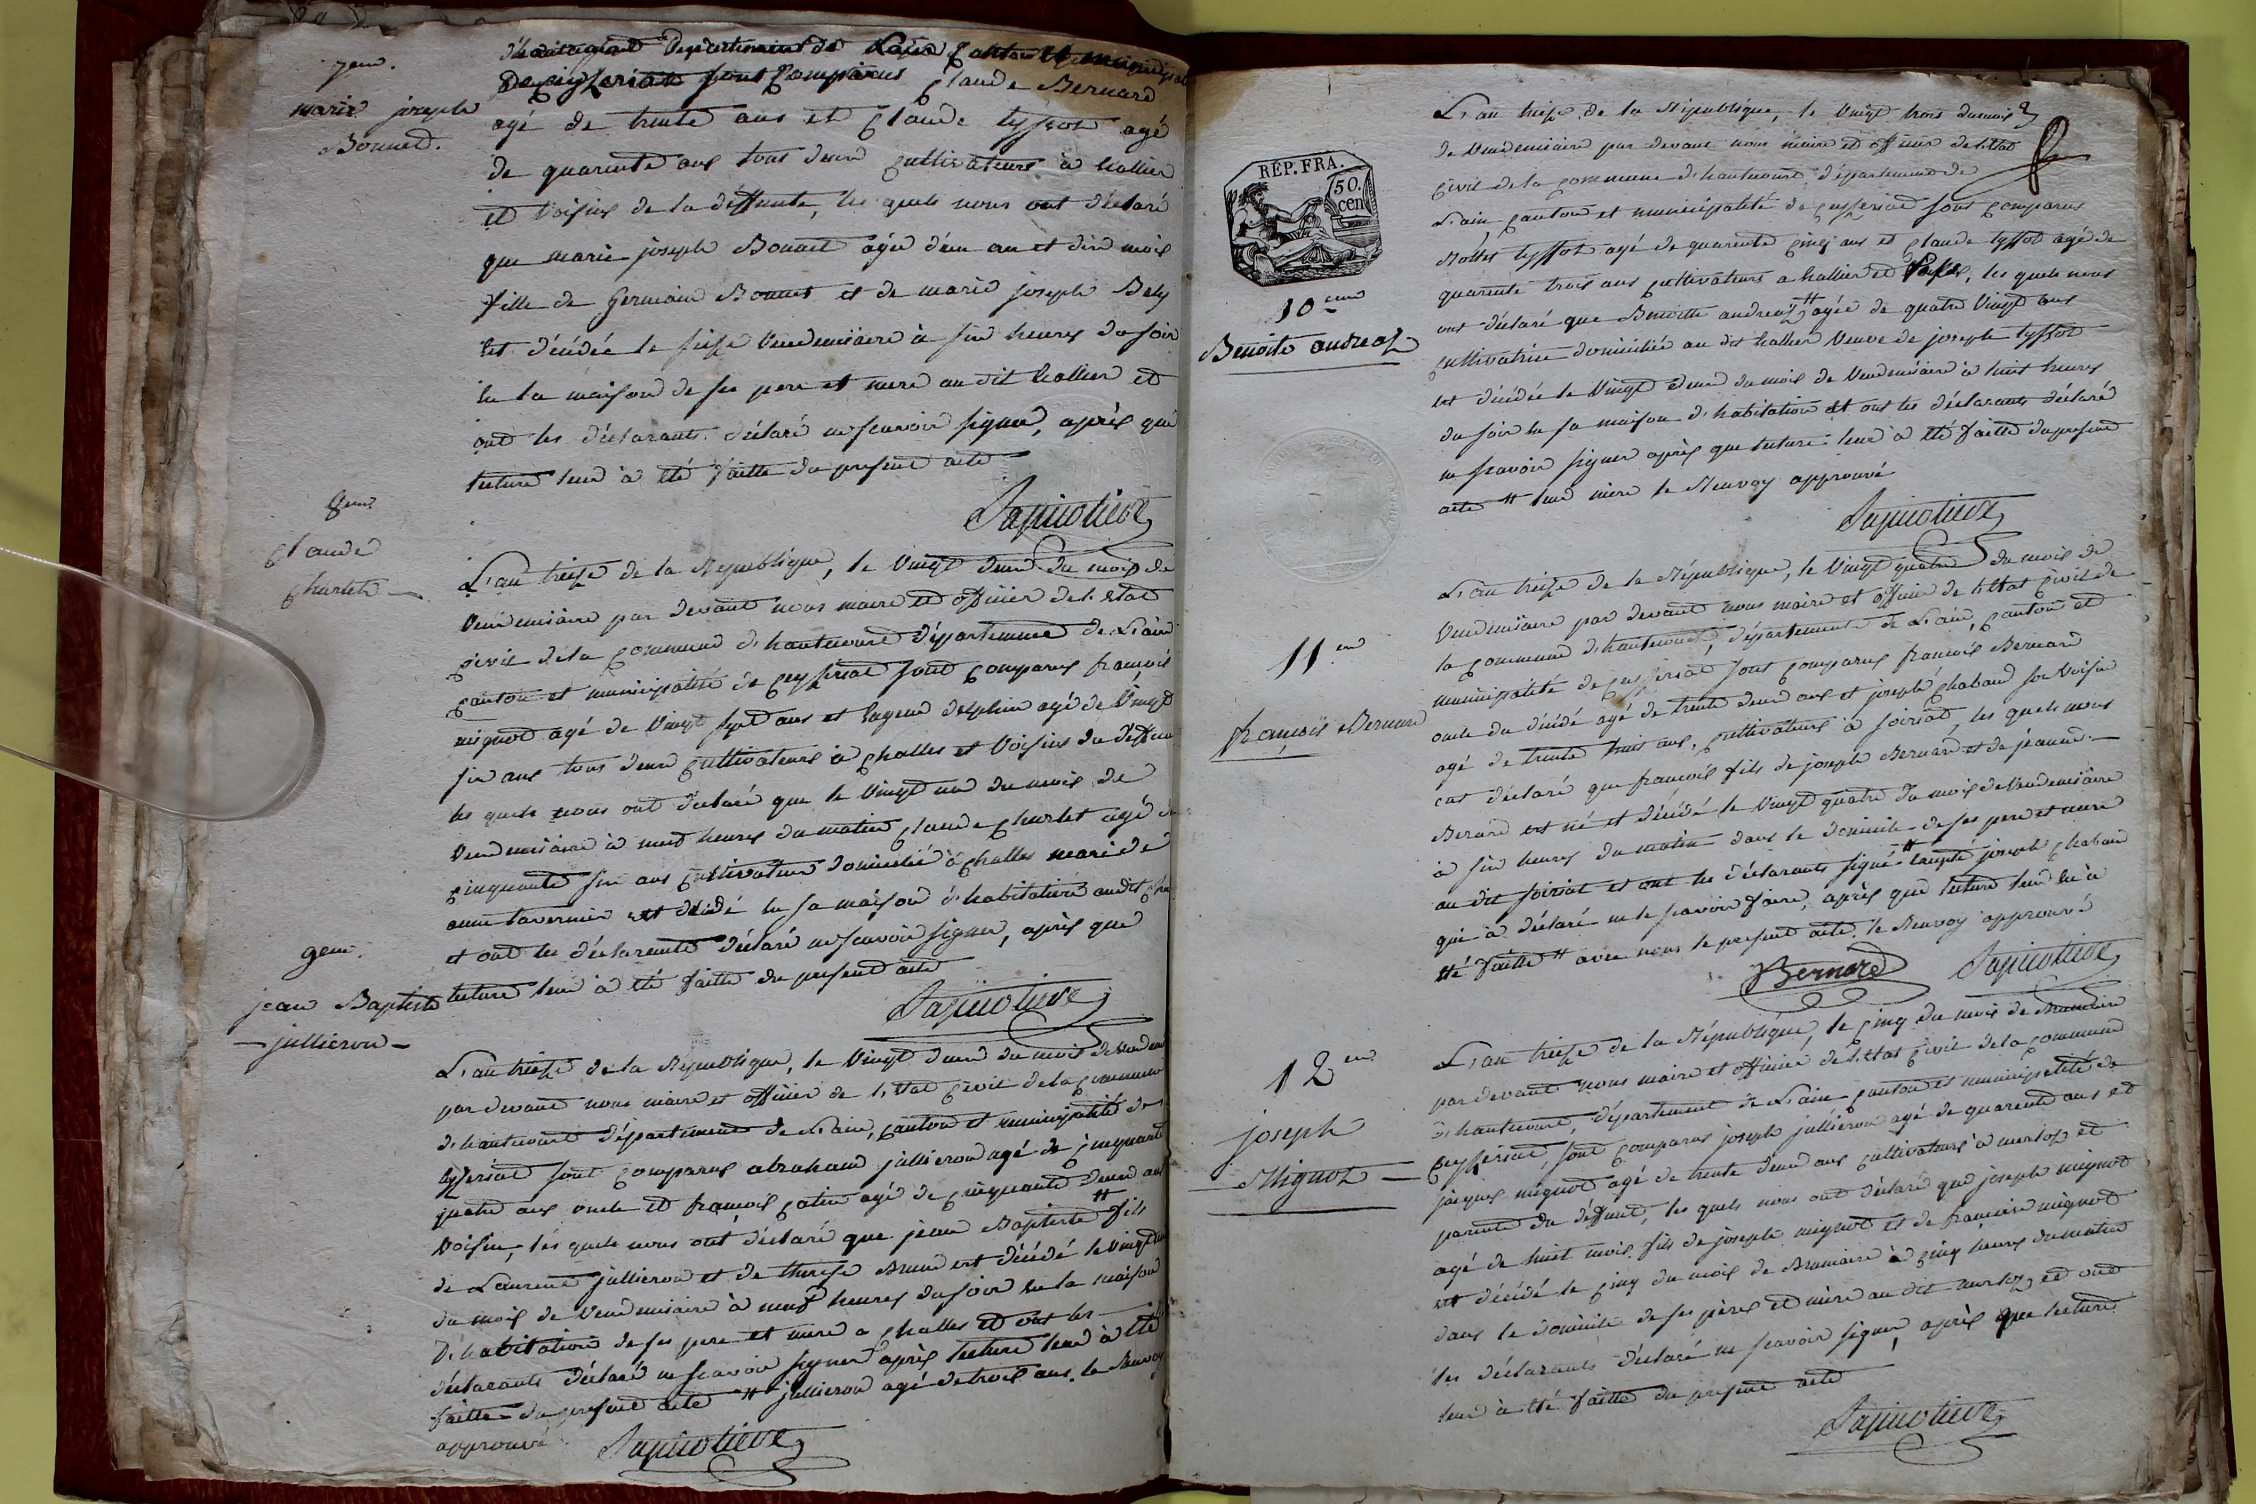 7eme.
marie joseph
Bonnet.
d'hautecourt Département de Lain Canton et municipalité
De ceyseriat sont Comparus Claude Bernard
agé de trente ans et Claude tyssot agé
de quarente ans tous deux cultivateurs à hallier
et voisins de la deffunte, les quels nous ont déclaré
que marie joseph Bonnet agée d'un an et dix mois
fille de Germain Bonnet et de marie joseph Bely
est décédée le seise vendemiaire à six heures du soir
en la maison de ses pere et mere au dit hallier et
ont les déclarants déclaré ne scavoir signer, après que
lecture leur à été faitte du present acte
8eme
Claude
Charlet
L'an treise de la République, le vingt deux du mois de
vendemiaire par devant nous maire et officier de l'etat
civil de la commune d'hautecourt département de L'ain
canton et municipalité de ceyseriat sont comparus françois
mignot agé de vingt sept ans et Eugene delphin agé de vingt
six ans tous deux cultivateurs à challes et voisins du deffunt
les quels nous ont déclaré que le vingt un du mois de
vendemiaire à neuf heures du matin claude Charlet agé de
cinquante six ans cultivateur domicilié à challes mari de
anne tavernier est décédé en sa maison d'habitation audit
et ont les déclarants déclaré ne scavoir signer, après que
lecture leur à été faitte du present acte
9eme.
jean Baptiste
- jullieron -
L'an treise de la République, le vingt deux du mois de
par devant nous maire et officier de l'etat civil de la commune
d'hautecourt département de L'ain, canton et municipalité de
ceyseriat sont comparus abraham jullieron agé de cinquante
quatre ans oncle et françois catin agé de cinquante deux ans
voisin, les quels nous ont déclaré que jean Baptiste # fils
de Laurent jullieron et de therese Brun est décédé le vingt
du mois de vendemiaire à neuf heures du soir en la maison
D'habitation de ses pere et mere a challes et ont les
déclarants déclaré ne scavoir signer après lecture leur à été
faitte du present acte # jullieron agé de trois ans. le Renvoy
approuvé
REP. FRA.
50.
cen
10eme
Benoite andreaz
L'an treise de la République, le vingt trois du mois
de vendemiaire par devant nous maire et officier de l'etat
civil de la commune d'hautecourt département de
L'ain, canton et municipalité de ceyseriat sont comparus
tyssot agé de quarente cinq ans et claude tyssot agé de
quarente trois ans cultivateurs a hallier et, les quels nous
ont déclaré que Benoitte andreaz # agée de quatre vingt ans
cultivatrice domiciliée au dit hallier veuve de joseph tyssot
est décédée le vingt deux du mois de vendemiaire à huit heures
du soir en sa maison d'habitation et ont les déclarants déclaré
ne scavoir signer après que lecture leur à été faitte du present
acte # leur mere le Renvoy approuvé
11eme
françois Bernard
L'an treise de la République, le vingt quatre du mois de
vendemiaire par devant nous maire et officier de l'etat civil de
la commune d'hautecourt, département de L'ain, canton et
municipalité de ceyseriat sont comparus francois Bernard
oncle du décédé agé de trente deux ans et joseph chaband son voisin
agé de trente huit ans, cultivateurs à soiriat, les quels nous
ont déclaré que francois fils de joseph Bernard et de jeanne
Berard est né et décédé le vingt quatre du mois de vendemiaire
à six heures du matin dans le domicile de ses pere et mere
au dit soiriat et ont les déclarants signé # excepté joseph chaband
qui à déclaré ne le scavoir faire, après que lecture leur en à
été faitte # avec nous le present acte. le Renvoy approuvé
Bernard
12eme
joseph
Mignot
L'an treise de la République, le cinq du mois de Brumaire
par devant nous maire et officier de l'etat civil de la commune
d'hautecourt, département de L'ain canton et municipalité de
ceyseriat, sont comparus joseph jullieron agé de quarente ans et
jacques mignot agé de trente deux ans cultivateurs à merloz et
parents du deffunt, les quels nous ont déclaré que joseph mignot
agé de huit mois fils de joseph mignot et de françoise mignot
est décédé le cinq du mois de Brumaire à cinq heures du matin
dans le domicile de ses pères et mère au dit merloz, et ont
les déclarants déclaré ne scavoir signer, après que lecture
leur à été faitte du present acte